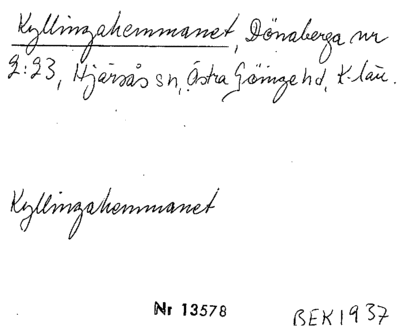 Kyllingahemmanet, Dönaberga nr
2:23, Hjärsås sn, Östra Göinge hd, K-län.
Kyllingahemmanet
Nr 13578
BEK 1937